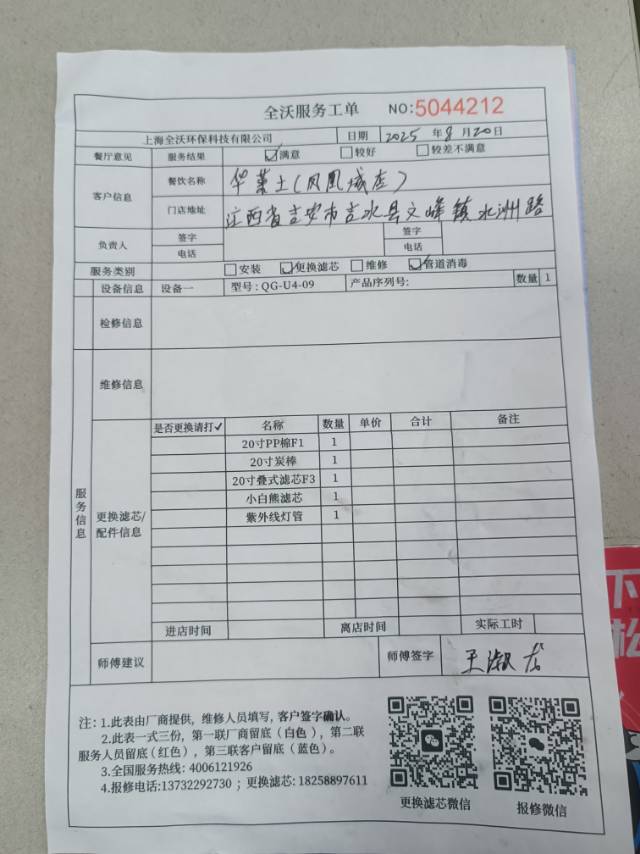 全沃服务工单 NO:5044212
上海全沃环保科技有限公司 日期 2025 年 8 月 20 日
餐厅意见 服务结果 ☑满意 □较好 □较差不满意
客户信息 餐饮名称 华莱士(凤凰城店)
门店地址 江西省吉安市吉水县文峰镇水洲路
负责人 签字 签字
电话 电话
服务类别 □安装 ☑更换滤芯 □维修 ☑管道消毒
设备信息 设备一 型号: QG-U4-09 产品序列号: 数量 1
检修信息
维修信息
服务信息
更换滤芯/配件信息
是否更换请打✓ 名称 数量 单价 合计 备注
20寸PP棉F1 1
20寸炭棒 1
20寸叠式滤芯F3 1
小白熊滤芯 1
紫外线灯管 1
进店时间 离店时间 实际工时
师傅建议 师傅签字 王淑龙
注: 1.此表由厂商提供，维修人员填写, 客户签字确认。
2.此表一式三份，第一联厂商留底（白色），第二联
服务人员留底（红色），第三联客户留底（蓝色）。
3.全国服务热线: 4006121926
4.报修电话:13732292730；更换滤芯: 18258897611
更换滤芯微信 报修微信
下
松